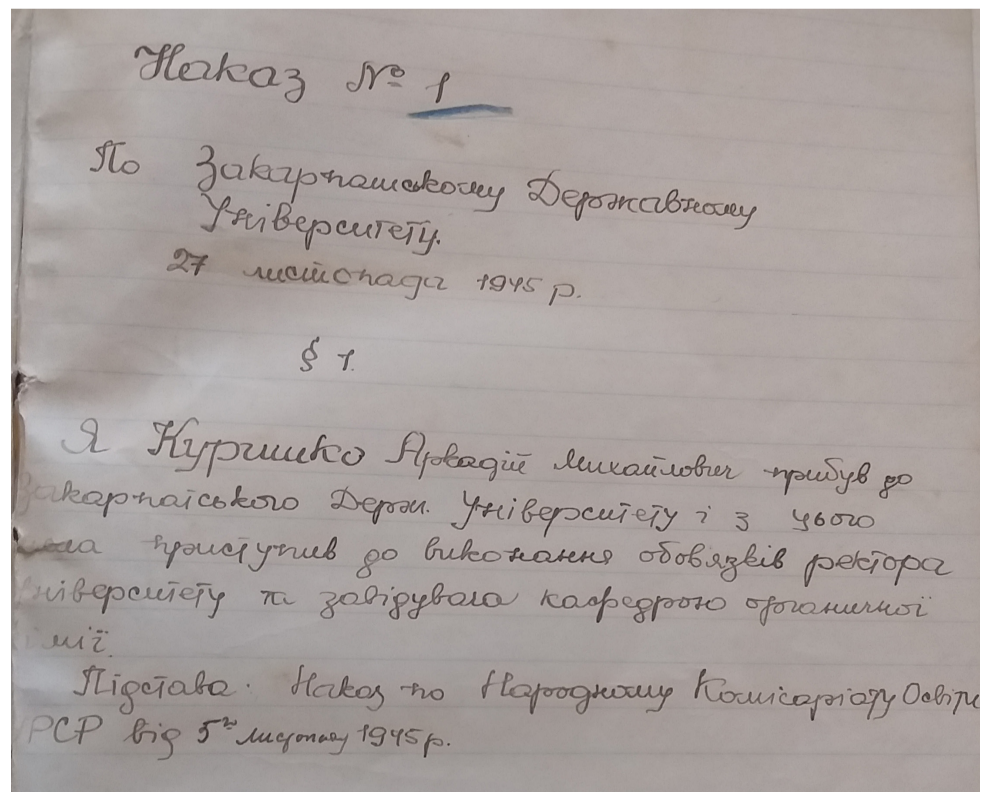 Наказ № 1
По Закарпатському Державному
Університету.
27 листопада 1945 р.
§ 1.
Я Куришко Аркадій Михайлович прибув до
Закарпатського Держ. Університету і з цього
приступив до виконання обовязків ректора
Університету та завідувача кафедрою органичної
хімії.
Підстава. Наказ по Народному Комісаріату Освіти
УРСР від 5го листопаду 1945 р.